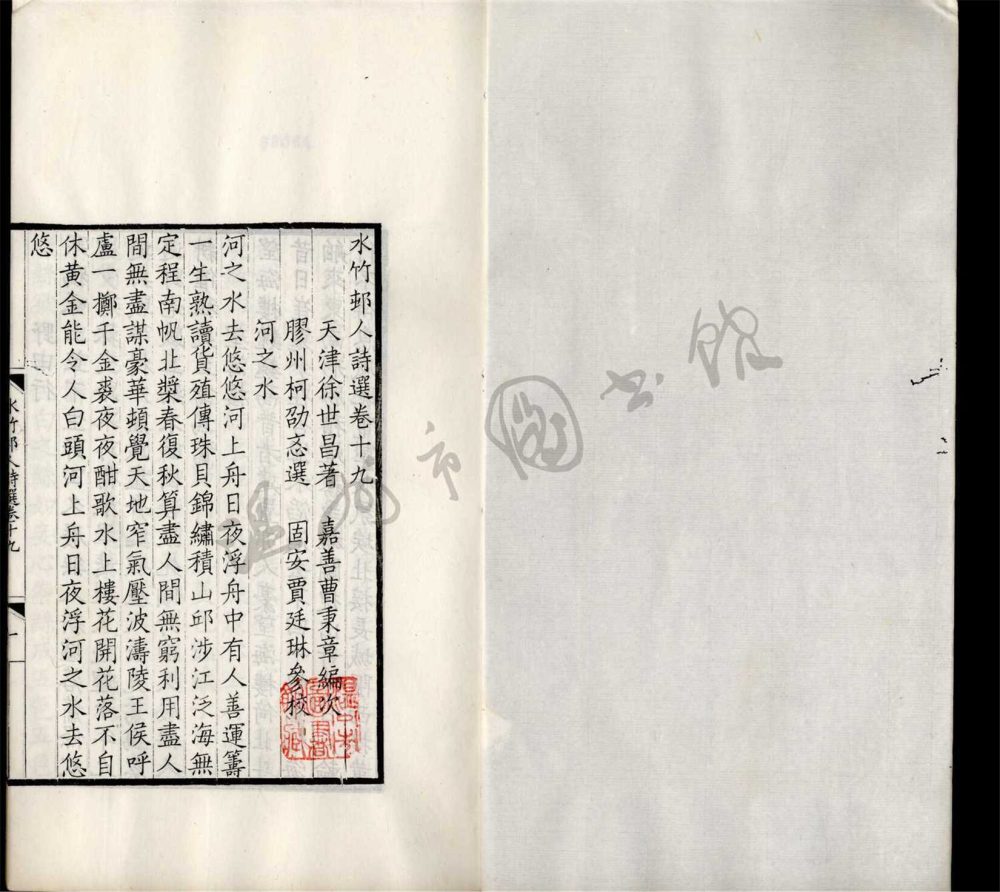 水竹邨人詩選卷十九
天津徐世昌著　嘉善曹秉章編次
膠州柯劭忞選　固安賈廷琳參校
河之水
河之水去悠悠河上舟日夜浮舟中有人善運籌
一生熟讀貨殖傳珠貝錦繡積山邱涉江泛海無
定程南帆北槳春復秋算盡人間無窮利用盡人
間無盡謀豪華頓覺天地窄氣壓波濤陵王侯呼
盧一擲千金裘夜夜酣歌水上樓花開花落不自
休黃金能令人白頭河上舟日夜浮河之水去悠
悠
水竹邨人詩選卷十九
一
溫州市圖書館